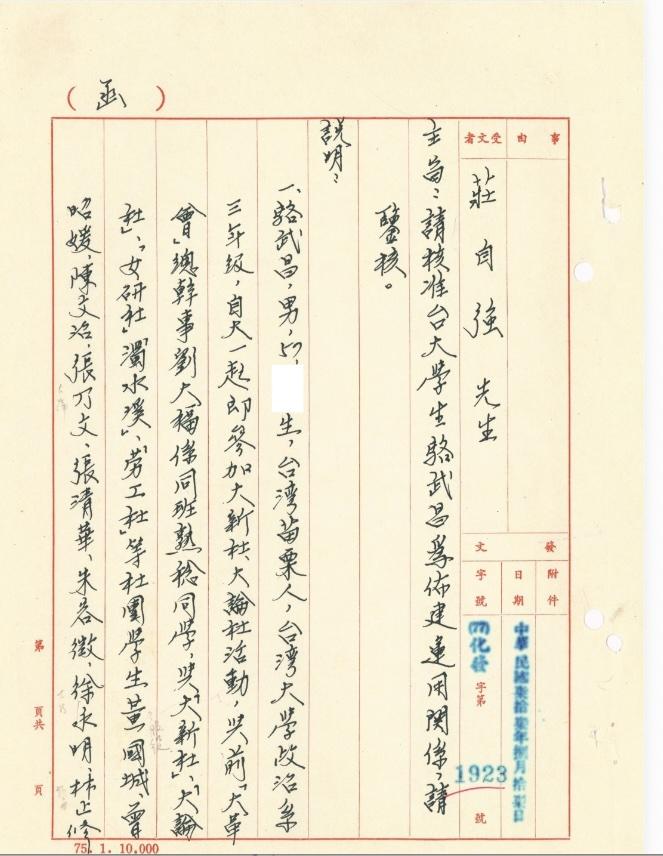 （函）
事由
受文者
莊自強先生
發文
附件
日期
中華民國柒拾柒年捌月拾柒日
字號
(77)化發字第1923號
主旨：請核准台大學生駱武昌為佈建運用關係，請
鑒核。
說明：
一、駱武昌，男，57，生，台灣苗栗人，台灣大學政治系
三年級，自大一起即參加大新社、大論社活動，與前「大革
會」總幹事劉大福係同班熟稔同學，與「大新社」、「大論
社」、「女研社」「濁水溪」、「勞工社」等社團學生黃國城、曾
昭媛、陳文治、張乃文、張清華、朱容徵、徐永明、林正修
第 頁共 頁
75. 1. 10.000